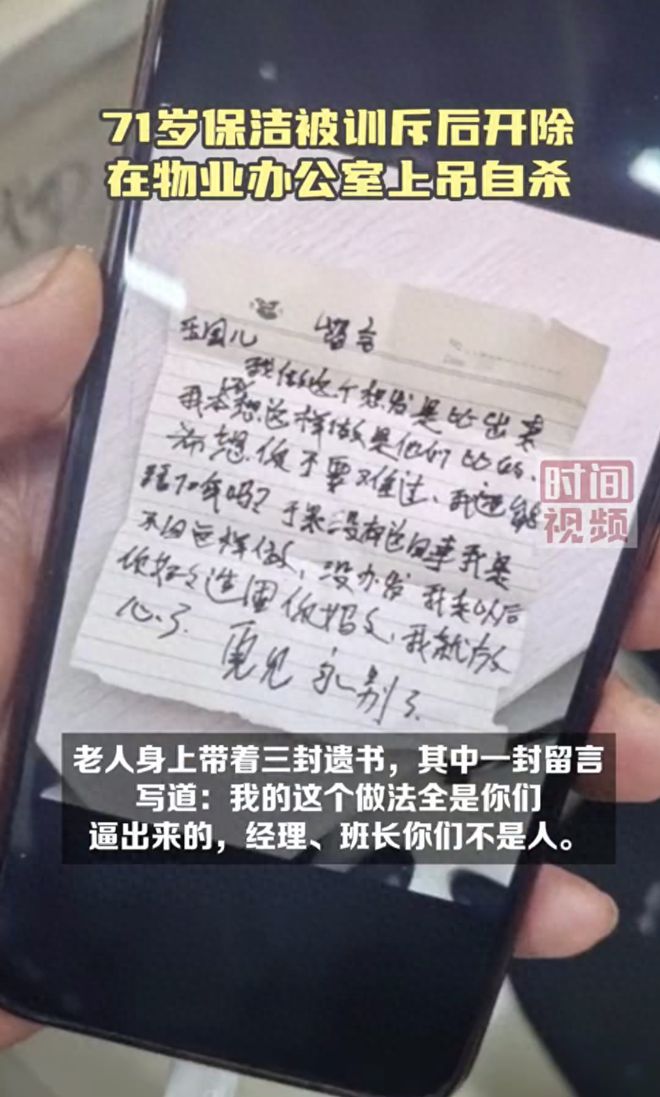 71岁保洁被训斥后开除
在物业办公室上吊自杀
留言
我做这个想发是比出来
我本想这样做是他们比的、
希想你不要难过、我还能
活几年吗？于果没有这回事我是
不会这样做，没办发我走以后
你好好造固你妈父，我就放
心了 再见 永别了
时间
视频
老人身上带着三封遗书，其中一封留言
写道：我的这个做法全是你们
逼出来的，经理、班长你们不是人。